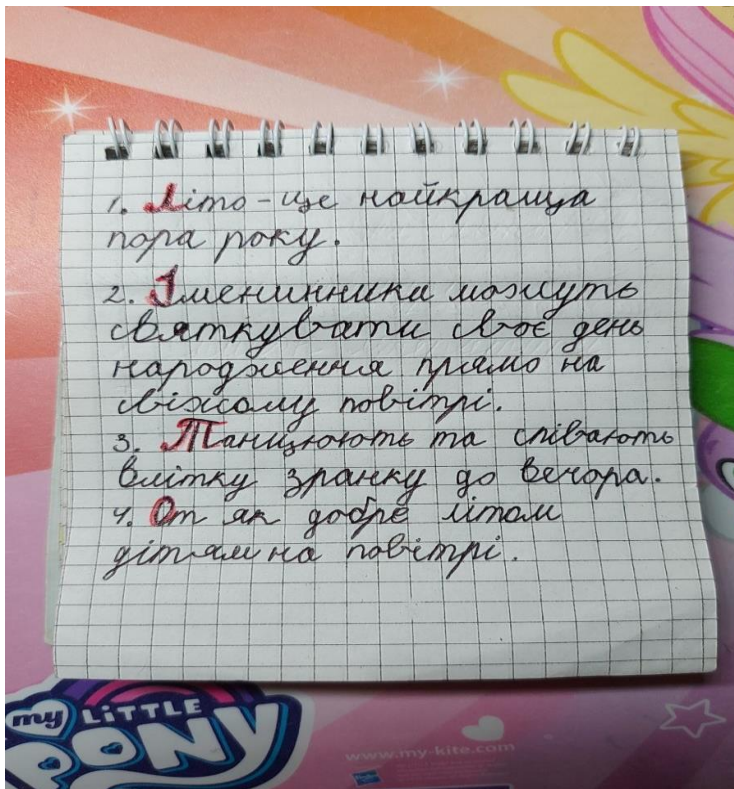 1. Літо - це найкраща
пора року.
2. Іменинники можуть
святкувати своє день
народження прямо на
свіжому повітрі.
3. Танцюють та співають
влітку зранку до вечора.
4. От як добре літом
дітям на повітрі.
my LiTTLE
PONY
www.my-kite.com
Hasbro